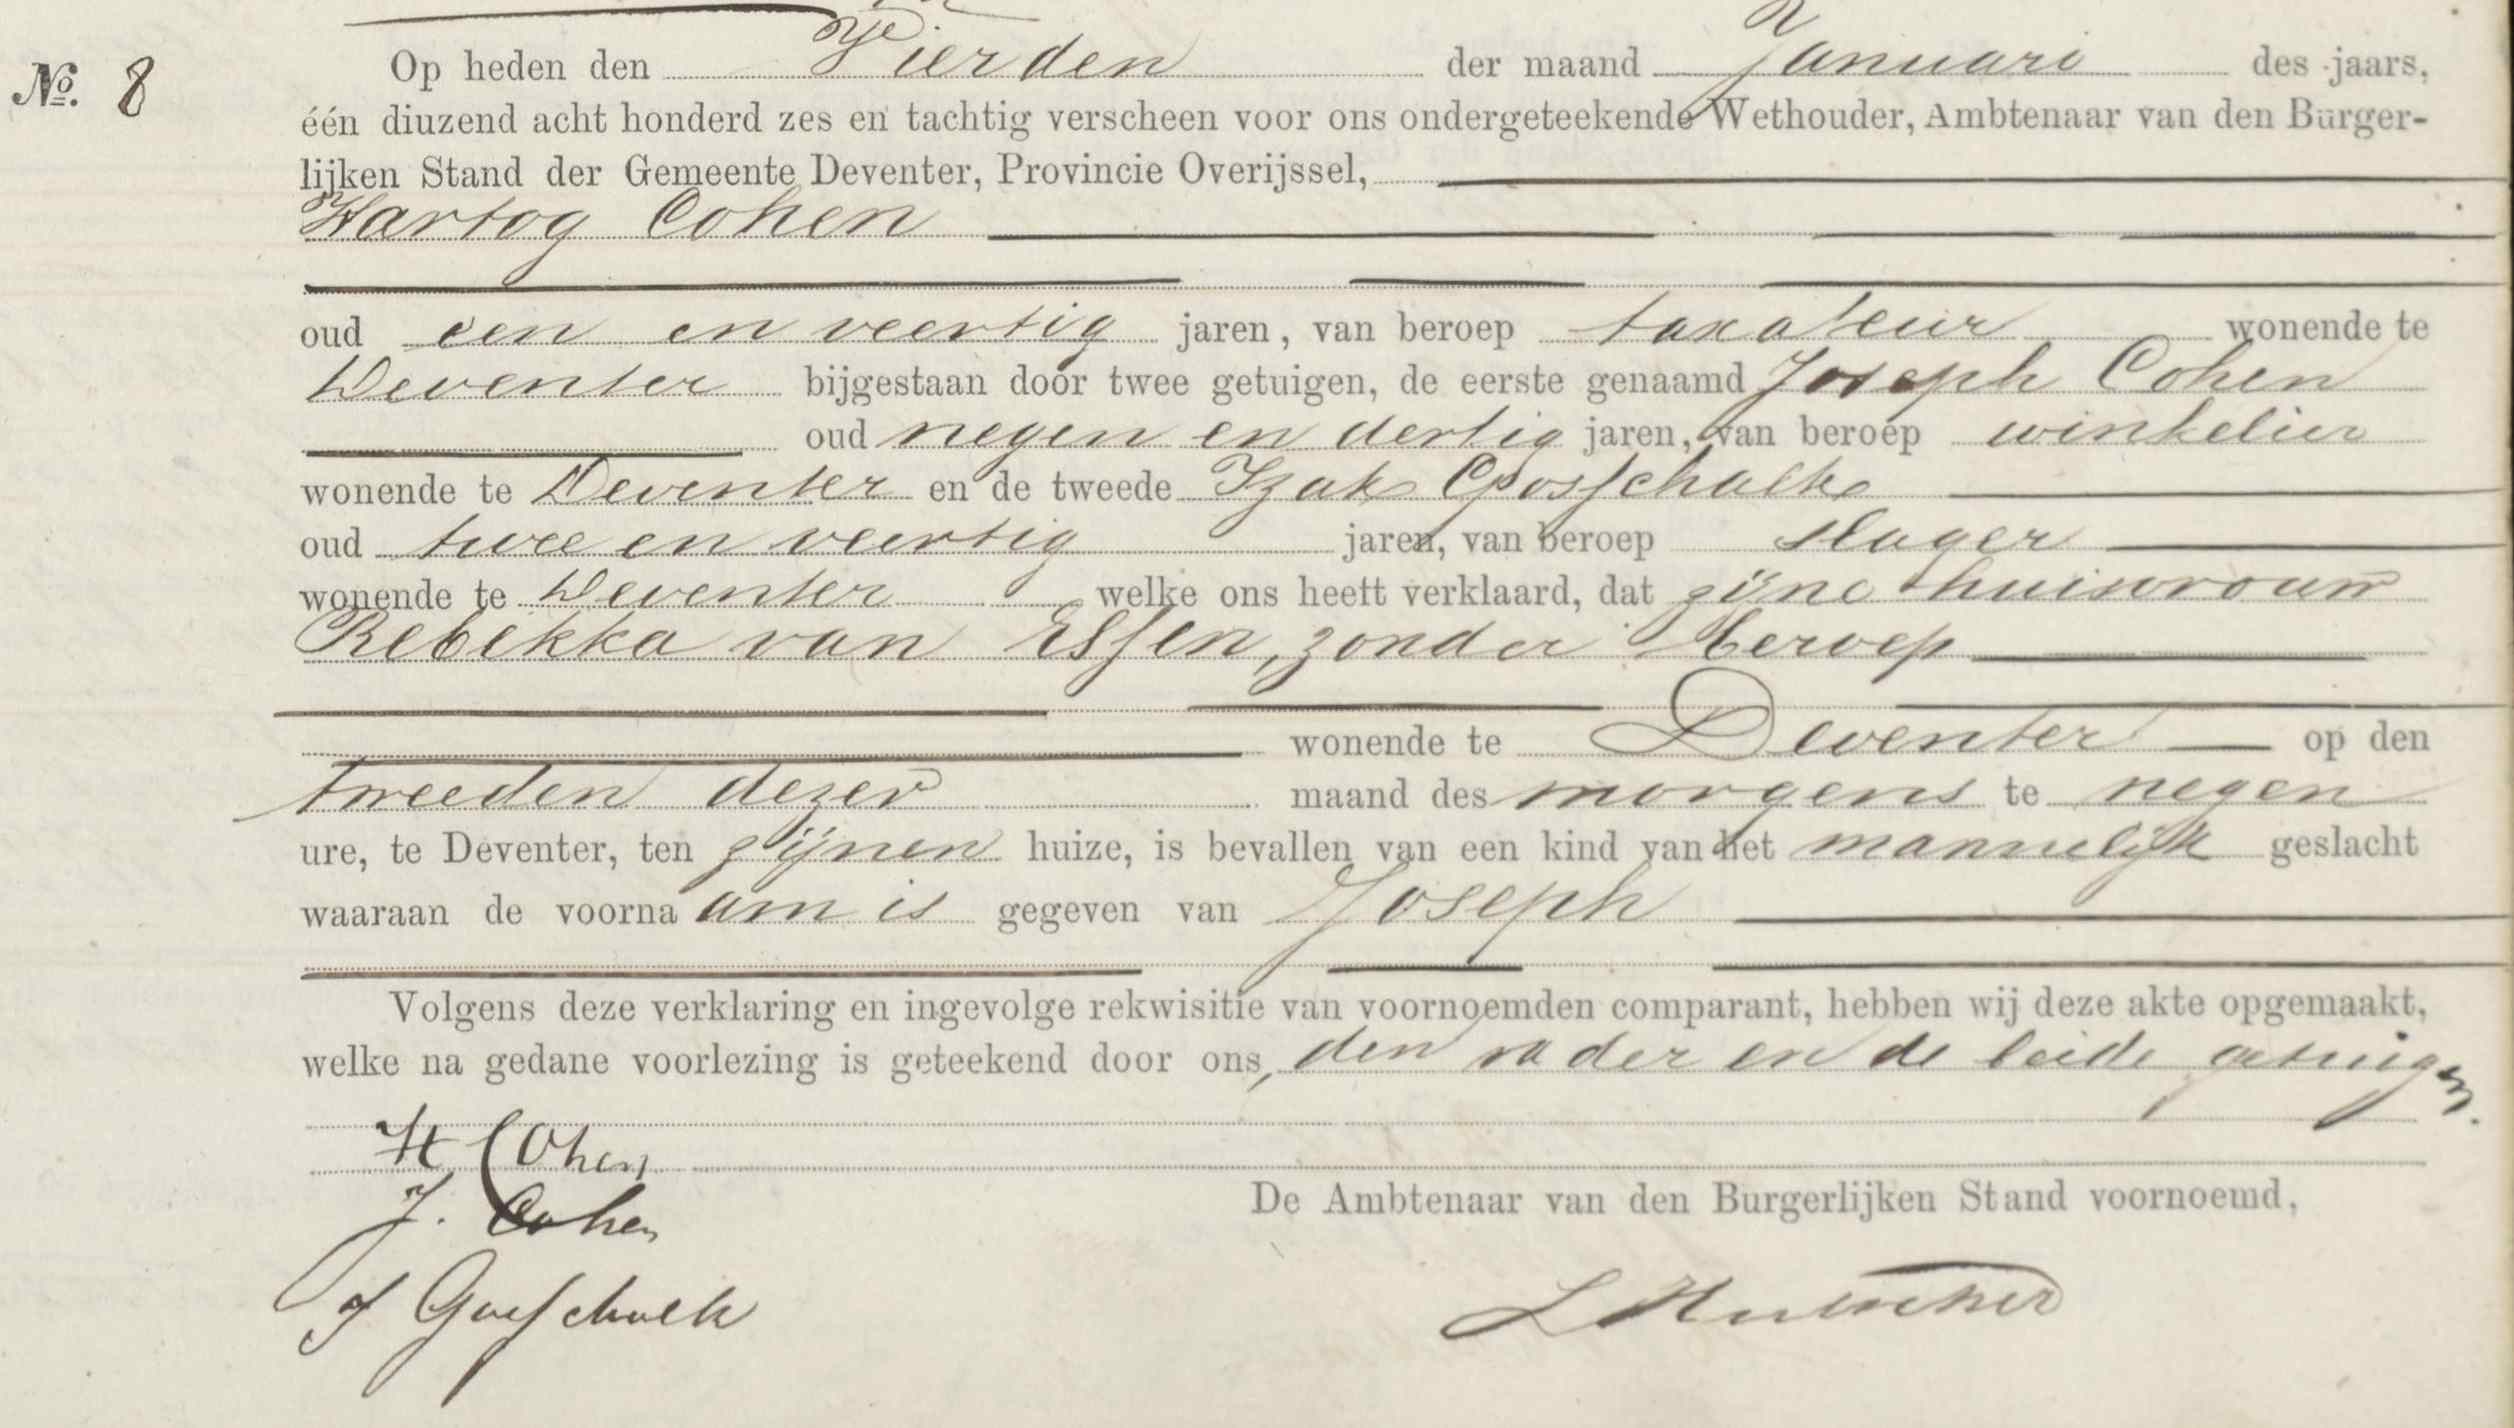 No. 8
Op heden den Vierden der maand Januari des jaars,
één diuzend acht honderd zes en tachtig verscheen voor ons ondergeteekende Wethouder, Ambtenaar van den Burger-
lijken Stand der Gemeente Deventer, Provincie Overijssel,
Hartog Cohen
oud een en veertig jaren, van beroep taxateur wonende te
Deventer bijgestaan door twee getuigen, de eerste genaamd Joseph Cohen
oud negen en dertig jaren, van beroep winkelier
wonende te Deventer en de tweede Izak Gosschalk
oud twee en veertig jaren, van beroep slager
wonende te Deventer welke ons heeft verklaard, dat zijne huisvrouw
Rebekka van Essen, zonder beroep
wonende te Deventer op den
tweeden dezer maand des morgens te negen
ure, te Deventer, ten zijnen huize, is bevallen van een kind van het mannelijk geslacht
waaraan de voornaam is gegeven van Joseph
Volgens deze verklaring en ingevolge rekwisitie van voornoemden comparant, hebben wij deze akte opgemaakt,
welke na gedane voorlezing is geteekend door ons, den vader en de beide getuigen.
H Cohen
De Ambtenaar van den Burgerlijken Stand voornoemd,
J. Cohen
J Gosschalk